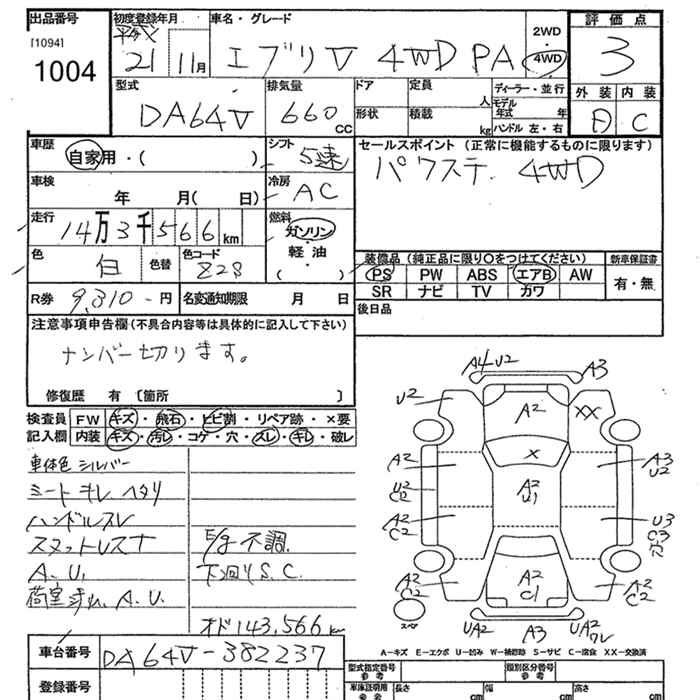 出品番号
[1094]
1004
初度登録年月 車名・グレード
平成
21 11月 エブリV 4WD PA
2WD
・
4WD
評価点
3
型式 排気量 ドア 定員
DA64V 660 cc
形状 積載
人
kg
ディーラー・並行
モデル年式 年
ハンドル 左・右
外装 内装
C
車歴
自家用・( )
シフト
5速
車検
年 月( 日)
冷房
AC
走行
14万3千566km
燃料
ガソリン
・
軽・油
( )
色 白 色替 色コード 828
R券 9,310-円 名変通知期限 月 日
セールスポイント (正常に機能するものに限ります)
パワステ 4WD
装備品 (純正品に限り○をつけてください)
PS PW ABS エアB AW
SR ナビ TV カワ
新車保証書
有・無
後日品
注意事項申告欄(不具合内容等は具体的に記入して下さい)
ナンバー切ります。
修復歴 有 〔箇所 〕
検査員 FW キズ・飛石・ヒビ割・リペア跡・×要
記入欄 内装 キズ・汚レ・コゲ・穴・スレ・キレ・破レ
車体色 シルバー
シート キレ ヘタリ
ハンドルスレ
A.U.
荷室 A.U.
E/g不調
下廻りS.C.
オド143,566km
A4 U2 A3
U2 A2 XX
X
A2 A2 U1 A3 U2
U2 C2
A2 C2 U3 C3
A2 C2 A2 C1 A2 C2
スペア
UA2 A3 UA2 ワレ
A-キズ E-エクボ U-凹み W-補修跡 S-サビ C-腐食 XX-交換済
車台番号 DA64V-382237
登録番号
型式指定番号 参考
類別区分番号 参考
車庫証明用 参考
長さ cm 幅 cm 高さ cm